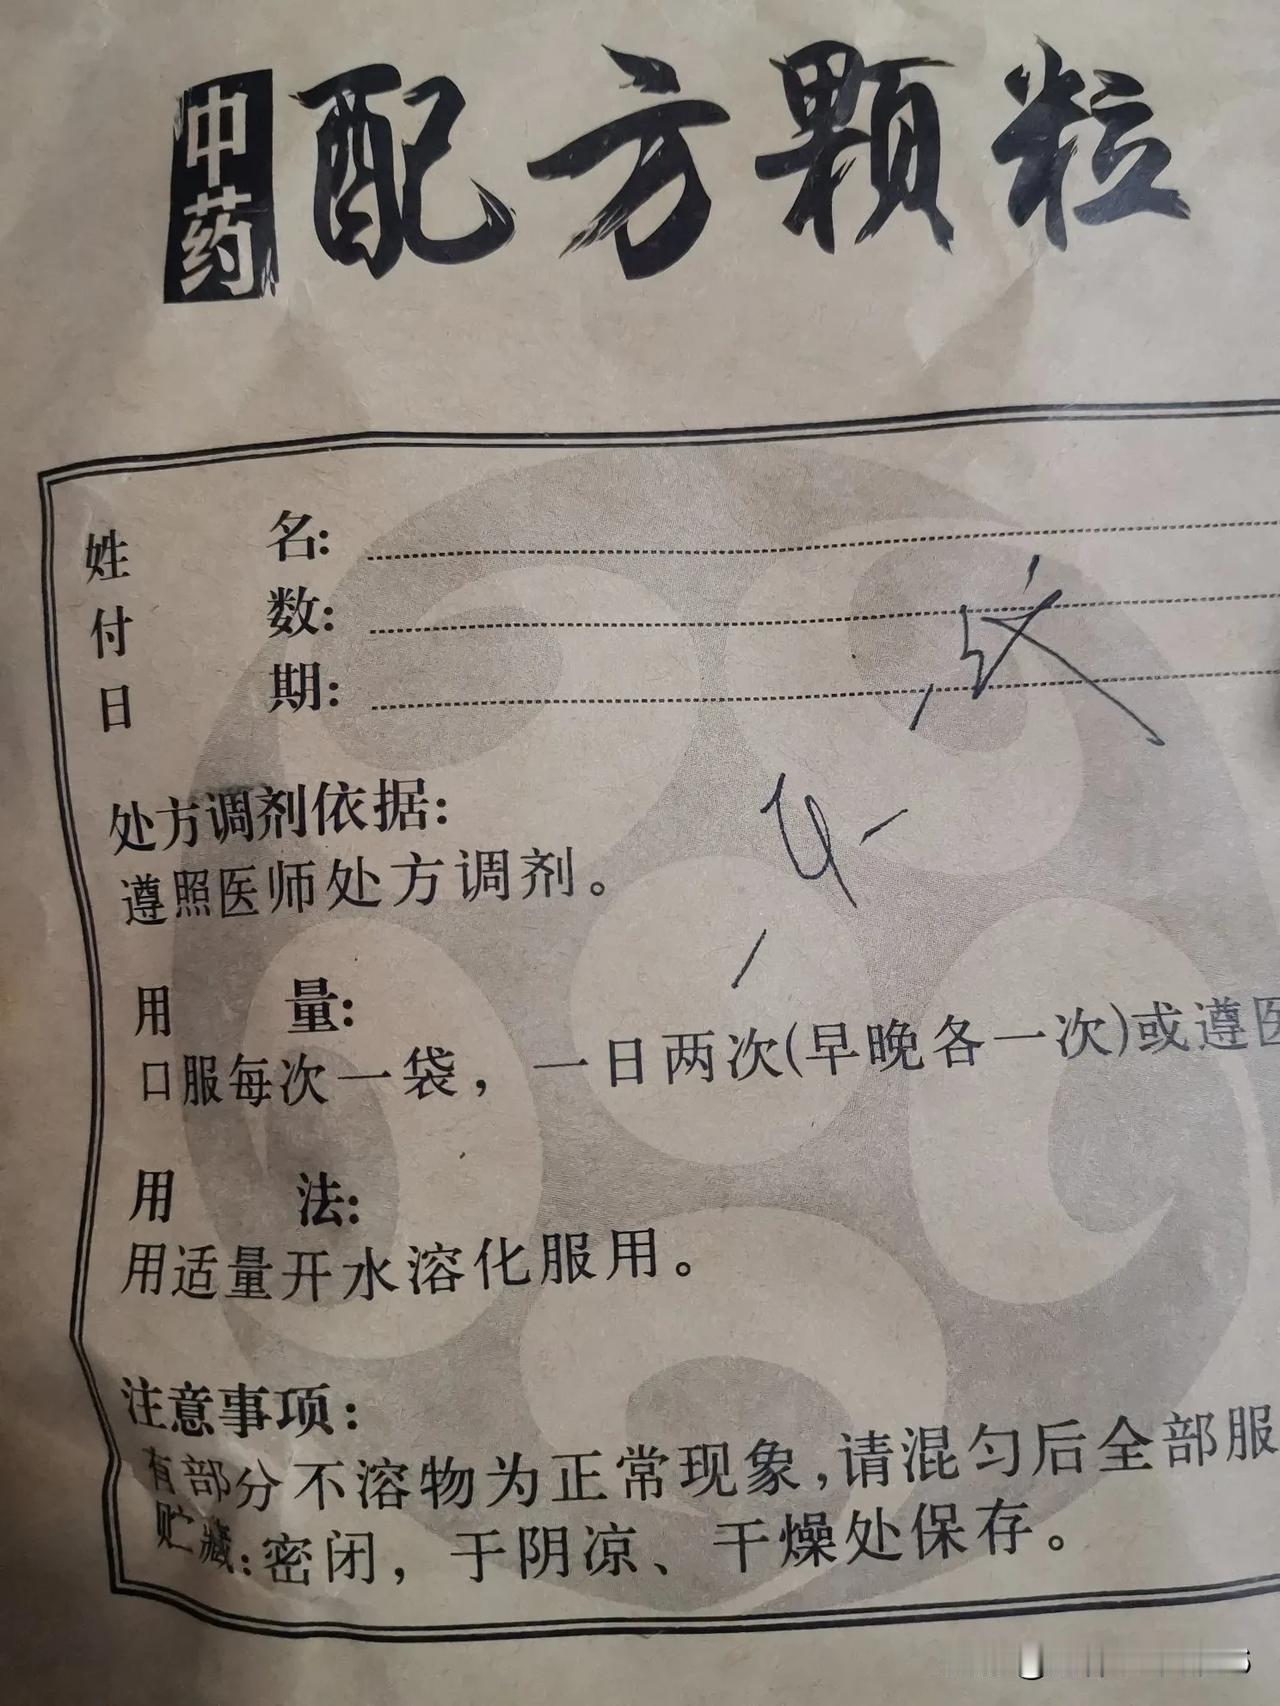 中药配方颗粒
姓名:
付数:
日期:
处方调剂依据:
遵照医师处方调剂。
用量:
口服每次一袋，一日两次(早晚各一次)或遵医
用法:
用适量开水溶化服用。
注意事项:
有部分不溶物为正常现象,请混匀后全部服
贮藏:密闭，于阴凉、干燥处保存。